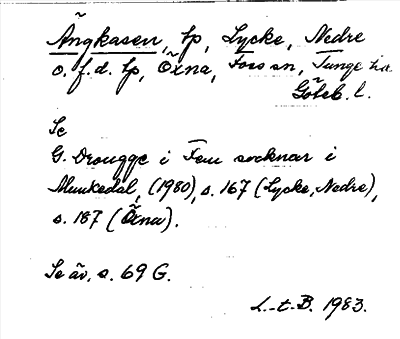 Ängkasen, tp, Lycke, Nedre
o. f. d. tp, Öxna, Foss sn, Tunge hd
Göteb. l.
Se
G. Drougge i Fem socknar i
Munkedal, (1980), s. 167 (Lycke, Nedre),
s. 187 (Öxna).
Se äv. s. 69 G.
L-t-B. 1983.